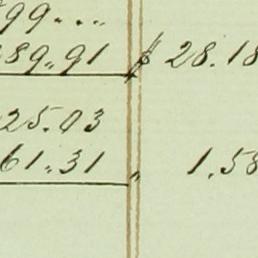 99....
89.91 $ 28.18
25.03
61.31 " 1.58